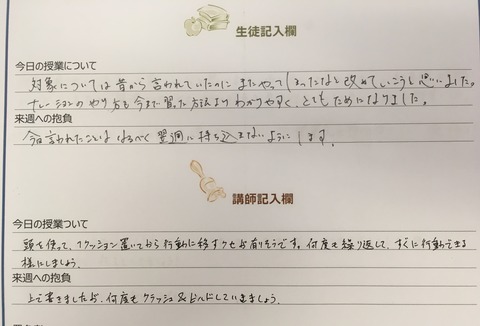 生徒記入欄
今日の授業について
対象については昔から言われていたのにまたやってしまったなと改めていこうと思いました。
ナレーションのやり方も今まで習った方法よりわかりやすく、とてもためになりました。
来週への抱負
今日言われたことはなるべく翌週に持ち込まないようにします。
講師記入欄
今日の授業ついて
頭を使って、1クッション置いてから行動に移すクセが有りそうです。何度も繰り返して、すぐに行動できる
様にしましょう。
来週への抱負
上で書きましたが、何度もクラッシュ&ビルドしていきましょう。